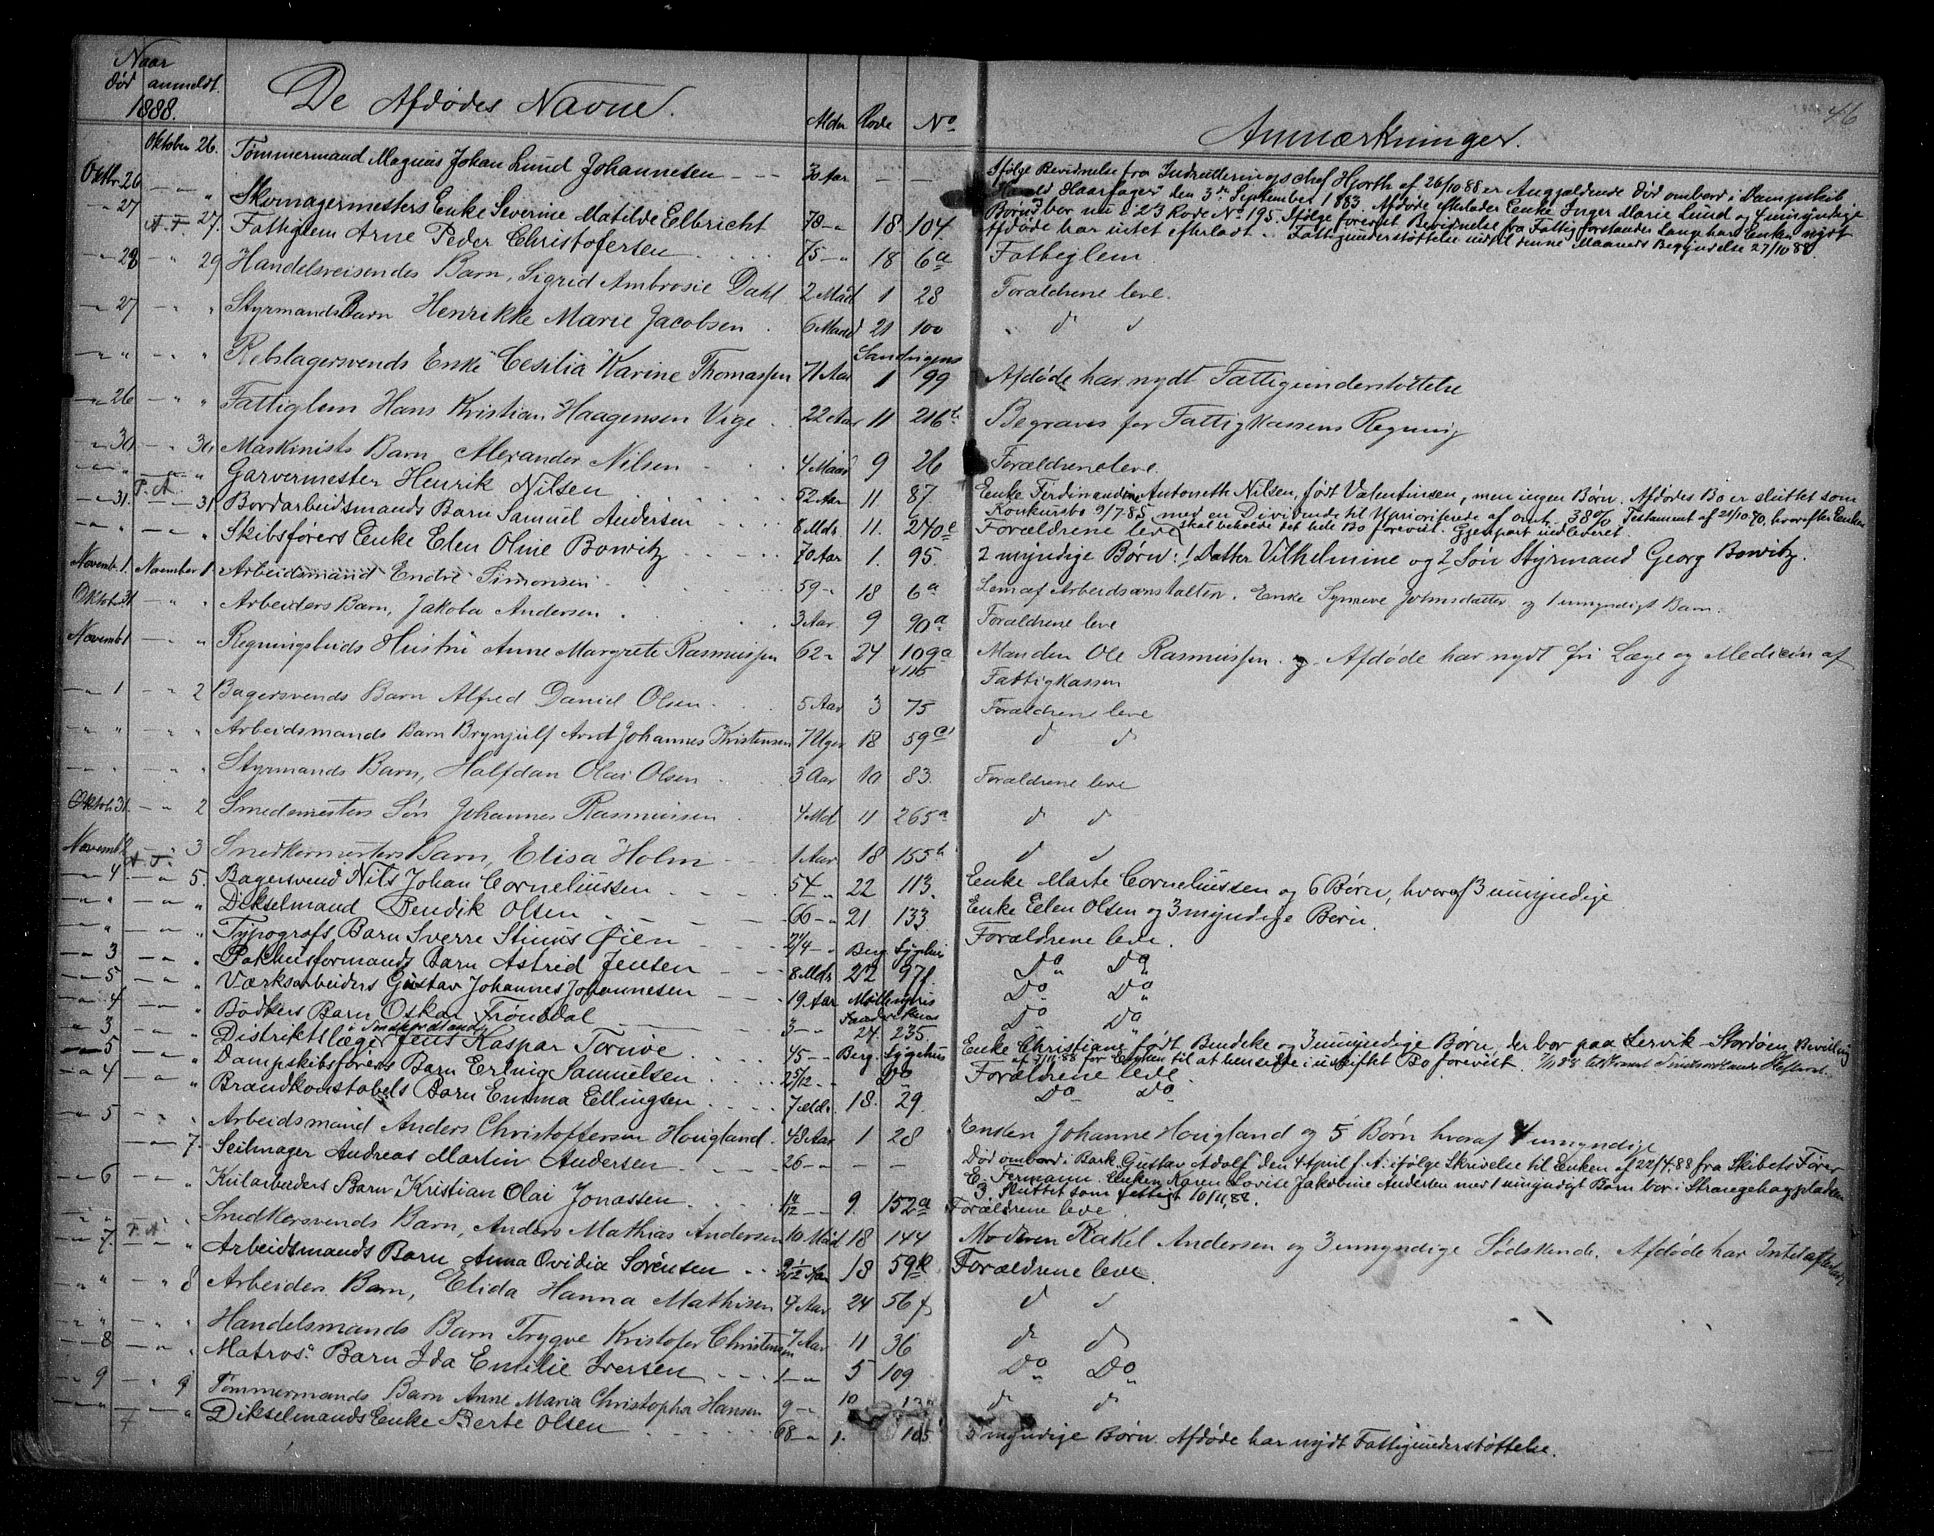 46
Naar
død anmeldt.
1888.
De Afdødes Navne.
Alder Rode No
Anmærkninger.
Oktober 26. Tømmermand Magnus Johan Lund Johannesen 30 Aar — — Ifølge Bevidnelse fra Indrulleringschef Hjorth af 26/10 88 er Angjældende død ombord i Dampskib
"Harald Haarfager" den 3de September 1883. Afdøde efterlader Enke Inger Marie Lund og 4 umyndige
Børn, bor nu i 23 Rode No 195. Ifølge forevist Bevidnelse fra Fattigforstander Lange har Enken nydt
Fattigunderstøttelse indtil denne Maaneds Begyndelse 27/10 88.
Oktbr. 26 — " Skomagermesters Enke Severine Matilde Elbricht 78 — " 18. 104. Afdøde har intet efterladt
— 27 A. F. 27. Fattiglem Arne Peder Christofersen 75 — " 18 6a Fattiglem.
— 28 — " 29 Handelsreisendes Barn, Sigrid Ambrosie Dahl. 2 Maad 1 28 Forældrene leve.
— 27 — " " Styrmands Barn Henrikke Marie Jacobsen 6 Maad 21 100 d d
Sandvigens
— " — " " Rebslagersvends Enke Cesilia Karine Thomassen 71 Aar 1 99 Afdøde har nydt Fattigunderstøttelse
— 26 — " " Fattiglem Hans Kristian Haagensen Vige 22 Aar 11 216b Begraves for Fattigkassens Regning
— 30 — " 30 Maskinists Barn Alexander Nilsen 4 Maad 9 26 Forældrene leve.
— " — " " Garvermester Henrik Nilsen 52 Aar 11 87. Enke Ferdinandine Antoneth Nilsen, født Valentinsen, men ingen Børn. Afdødes Bo er sluttet som
Konkursbo 9/7.85 med en Dividende til Uprioriterede af omtr. 38%. Testament af 21/10.70, hvorefter Enken
skal beholde det hele Bo forevist. Gjenpart indleveret.
— 31. F. A. 31 Bordarbeidsmands Barn Samuel Andersen 8 Mdr. 11. 240e Forældrene leve
— " — " " Skibsførers Enke Elen Oline Bowitz 70 Aar 1. 95. 2 myndige Børn: 1/ Datter Vilhelmine og 2/ Søn Styrmand Georg Bowitz.
Novemb. 1. November 1 Arbeidsmand Endre Simonsen 59 — 18 6a Lem af Arbeidsanstalten. Enke Synneve Johnsdatter og 1 umyndigt Barn.
Oktob. 31 — " " Arbeiders Barn, Jakoba Andersen 3 Aar. 9 90a Forældrene leve
Novemb. 1 — " " Regningsbuds Hustru Anne Margrete Rasmussen 62 " 24 109a Manden Ole Rasmussen. Afdøde har nydt fri Læge og Medicin af
115 Fattigkassen
— " 1 — " 2 Bagersvends Barn Alfred Daniel Olsen 5 Aar 3 75 Forældrene leve
— " — " " Arbeidsmands Barn Brynjulf Arnt Johannes Kristensen 7 Uger 18 59 d d
" — " " Styrmands Barn, Halfdan Olai Olsen 3 Aar 10 83. Forældrene leve
Oktob. 31. — " 2 Smedemesters Søn Johannes Rasmussen 4 Md 11 265a d d
Novemb. 2 — " 3 Snedkermesters Barn, Elisa Holm 1 Aar 18 155b d d
— 4 A. F. — " 5. Bagersvend Nils Johan Corneliussen 54 " 22 113. Enke Marte Corneliussen og 6 Børn, hvoraf 3 umyndige
— " — " " Dikselmand Bendik Olsen 66 — " 21 133 Enke Elen Olsen og 3 myndige Børn.
— " — " " Typografs Barn Sverre Stinus Øien 2¼ — " Berg. Sygehus Forældrene leve.
— 3 — " " Pakhusformands Barn Astrid Jensen 8 Mdr. 22 97f. Do Do
— 5 — " " Værksarbeiders Gustav Johannes Johannesen 19 Aar Møllenpris Do Do
Sandvikens
— 4 — " " Bødkers Barn Oskar Trøndal 3 — " 24 235 Do Do
— 3 — " " Distriktslæge i Søndhordland Jens Kaspar Tornøe 45 — Berg. Sygehus Enke Christiane født Bendeke og 3 umyndige Børn, der bor paa Lervik — Stordøen, Bevilling
af 3/11.88 for Enken til at hensidde i uskiftet Bo forevist.
— 5 — " " Dampskibsførers Barn Erling Samuelsen 2 5/12 — " Do Forældrene leve.
— " 4 — " " Brandkonstabels Barn Emma Ellingsen 7 Mdr. 18. 29. Do Do
— " 5 — " " Arbeidsmand Anders Christoffersen Hougland. 48 Aar 1 28 Enken Johanne Hougland og 5 Børn hvoraf 4 umyndige
— " — 7. Seilmager Andreas Martin Andersen 26 — " — — Død ombord i Bark "Gustav Adolf" den 4 April f. A. ifølge Skrivelse til Enken af 22/4.88 fra Skibets Fører
E. Fermann. Enken Karen Lovise Jakobine Andersen med 1 umyndigt Barn bor i Strangehagpladsen
3. Sluttet som fattigt 10/11.88.
— 6 — " " Kularbeiders Barn Kristian Olai Jonassen 9. 152a Forældrene leve.
" " " Snedkersvends Barn, Anders Mathias Andersen 10 Maad 18 144 Moderen Rakel Andersen og 3 umyndige Sødskende. Afdøde har Intet efterladt
— 7. F. A. " Arbeidsmands Barn Anna Ovidia Sørensen 2½ Aar 18 59k Forældrene leve.
" " " 8 Arbeiders Barn, Elida Hanna Mathisen 4 Aar 24 56f d d
" " " Handelsmands Barn Trygve Kristofer Christensen 7 Aar 11 36 d d
— 8 — " " Matros. Barn Ida Emilie Iversen 1 — " 5 109 Do Do
— 9 — " 9 Tømmermands Barn Anne Maria Christopha Hansen 9 — " 10 d d
— " — " Dikselmands Enke Berte Olsen 68 — " 1. 105. 5 myndige Børn. Afdøde har nydt Fattigunderstøttelse.